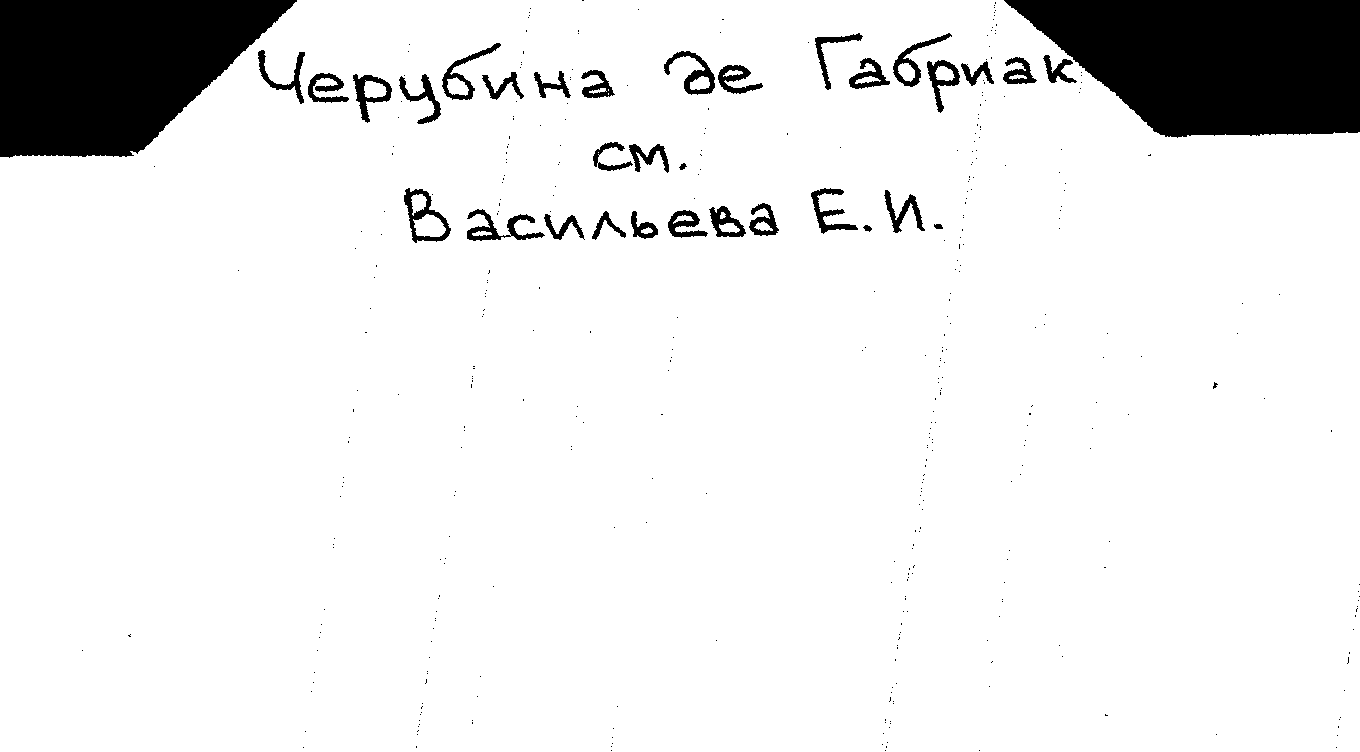 Черубина де Габриак
см.
Васильева Е.И.